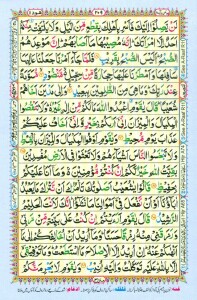 لَنْ يَّصِلُوْۤا اِلَيْكَ فَاَسْرِ بِاَهْلِكَ بِقِطْعٍ مِّنَ الَّيْلِ وَلَا يَلْتَفِتْ مِنْكُمْ
اَحَدٌ اِلَّا امْرَاَتَكَ اِنَّهٗ مُصِيْبُهَا مَاۤ اَصَابَهُمْ اِنَّ مَوْعِدَهُمُ
الصُّبْحُ اَلَيْسَ الصُّبْحُ بِقَرِيْبٍ فَلَمَّا جَآءَ اَمْرُنَا جَعَلْنَا
عَالِيَهَا سَافِلَهَا وَاَمْطَرْنَا عَلَيْهَا حِجَارَةً مِّنْ سِجِّيْلٍ مَّنْضُوْدٍ
مُّسَوَّمَةً عِنْدَ رَبِّكَ وَمَا هِيَ مِنَ الظّٰلِمِيْنَ بِبَعِيْدٍ وَاِلٰى مَدْيَنَ
اَخَاهُمْ شُعَيْبًا قَالَ يٰقَوْمِ اعْبُدُوا اللّٰهَ مَا لَكُمْ مِّنْ اِلٰهٍ غَيْرُهٗ
وَلَا تَنْقُصُوا الْمِكْيَالَ وَالْمِيْزَانَ اِنِّيْۤ اَرٰىكُمْ بِخَيْرٍ وَّاِنِّيْۤ اَخَافُ
عَلَيْكُمْ عَذَابَ يَوْمٍ مُّحِيْطٍ وَيٰقَوْمِ اَوْفُوا الْمِكْيَالَ وَالْمِيْزَانَ
بِالْقِسْطِ وَلَا تَبْخَسُوا النَّاسَ اَشْيَآءَهُمْ وَلَا تَعْثَوْا فِي الْاَرْضِ مُفْسِدِيْنَ
بَقِيَّتُ اللّٰهِ خَيْرٌ لَّكُمْ اِنْ كُنْتُمْ مُّؤْمِنِيْنَ وَمَاۤ اَنَا عَلَيْكُمْ بِحَفِيْظٍ
قَالُوْا يٰشُعَيْبُ اَصَلٰوتُكَ تَاْمُرُكَ اَنْ نَّتْرُكَ مَا يَعْبُدُ اٰبَآؤُنَاۤ
اَوْ اَنْ نَّفْعَلَ فِيْۤ اَمْوَالِنَا مَا نَشٰٓؤُا اِنَّكَ لَاَنْتَ الْحَلِيْمُ
الرَّشِيْدُ قَالَ يٰقَوْمِ اَرَءَيْتُمْ اِنْ كُنْتُ عَلٰى بَيِّنَةٍ مِّنْ رَّبِّيْ
وَرَزَقَنِيْ مِنْهُ رِزْقًا حَسَنًا وَمَاۤ اُرِيْدُ اَنْ اُخَالِفَكُمْ اِلٰى مَاۤ
اَنْهٰىكُمْ عَنْهُ اِنْ اُرِيْدُ اِلَّا الْاِصْلَاحَ مَا اسْتَطَعْتُ وَمَا تَوْفِيْقِيْۤ
اِلَّا بِاللّٰهِ عَلَيْهِ تَوَكَّلْتُ وَاِلَيْهِ اُنِيْبُ وَيٰقَوْمِ لَا